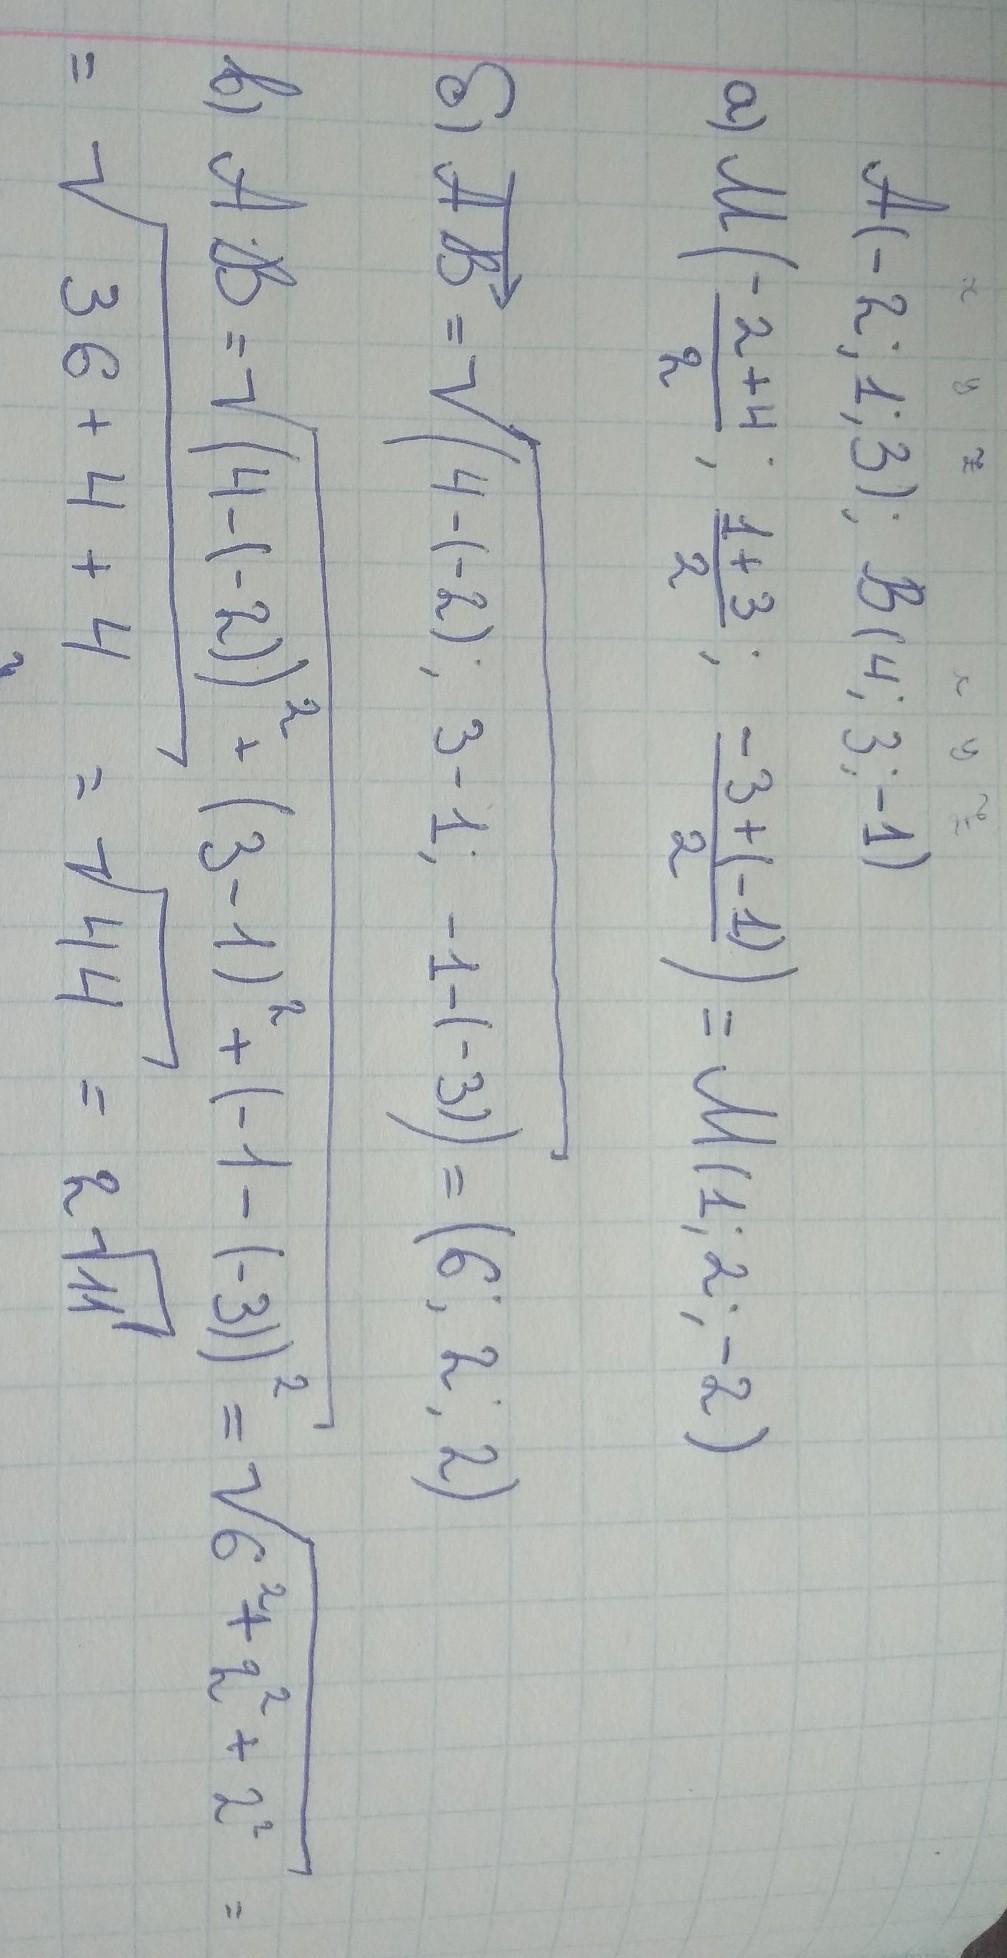 x y z x y z
A(-2; 1; 3); B(4; 3; -1)
а) M((-2+4)/2; (1+3)/2; (-3+(-1))/2) = M(1; 2; -2)
б) \overrightarrow{AB} = √(4-(-2); 3-1; -1-(-3)) = (6; 2; 2)
в) AB = √((4-(-2))² + (3-1)² + (-1-(-3))²) = √(6² + 2² + 2²) =
= √(36 + 4 + 4) = √44 = 2√11